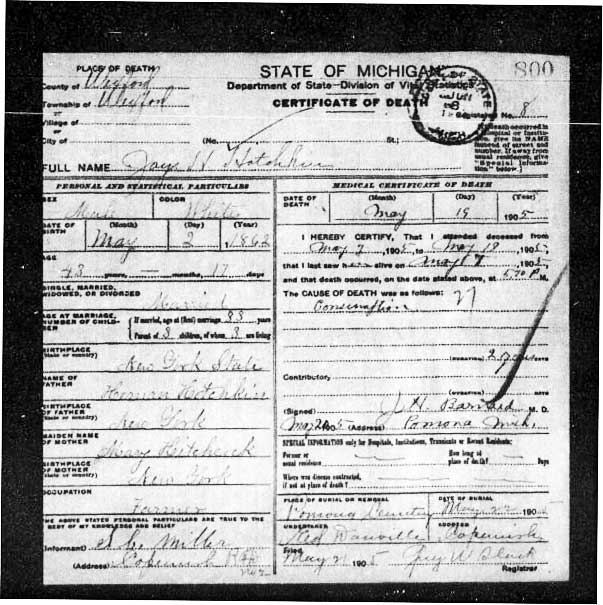 PLACE OF DEATH
STATE OF MICHIGAN
800
County of Wexford
Department of State—Division of Vital Statistics
Township of Wexford
CERTIFICATE OF DEATH
or
Village of
Registered No. 8
or
City of (No. St.;
FULL NAME Jay H Hotchkin
PERSONAL AND STATISTICAL PARTICULARS
SEX Male COLOR White
DATE OF BIRTH (Month) May (Day) 2 (Year) 1862
AGE
43 years, — months, 17 days
SINGLE, MARRIED,
WIDOWED, OR DIVORCED
Married
AGE AT MARRIAGE,
NUMBER OF CHILDREN
If married, age at (first) marriage years
Parent of 3 children, of whom 3 are living
BIRTHPLACE
(State or country)
New York State
NAME OF
FATHER
Hotchkin
BIRTHPLACE
OF FATHER
(State or country)
New York
MAIDEN NAME
OF MOTHER
Mary Hitchcock
BIRTHPLACE
OF MOTHER
(State or country)
New York
OCCUPATION
Farmer
THE ABOVE STATED PERSONAL PARTICULARS ARE TRUE TO THE
BEST OF MY KNOWLEDGE AND BELIEF
(Informant) Miller
(Address) Copemish
MEDICAL CERTIFICATE OF DEATH
DATE OF DEATH (Month) May (Day) 19 (Year) 1905
I HEREBY CERTIFY, That I attended deceased from
May 7, 1905, to May 18, 1905,
that I last saw him alive on May 17, 1905,
and that death occurred, on the date stated above, at 5.70 P M.
The CAUSE OF DEATH was as follows: 27
Consumption
(DURATION) 2 years DAYS
Contributory
(DURATION) DAYS
(Signed) J. H. M. D.
May 1905 (Address) Pomona Mich.
SPECIAL INFORMATION only for Hospitals, Institutions, Transients or Recent Residents:
Former or
usual residence
How long at
place of death? Days
Where was disease contracted,
if not at place of death?
PLACE OF BURIAL OR REMOVAL
DATE OF BURIAL
Pomona Cemetery May 22 190
UNDERTAKER
ADDRESS
Copemish
Filed
May 21 1905 Guy W Slack
Registrar